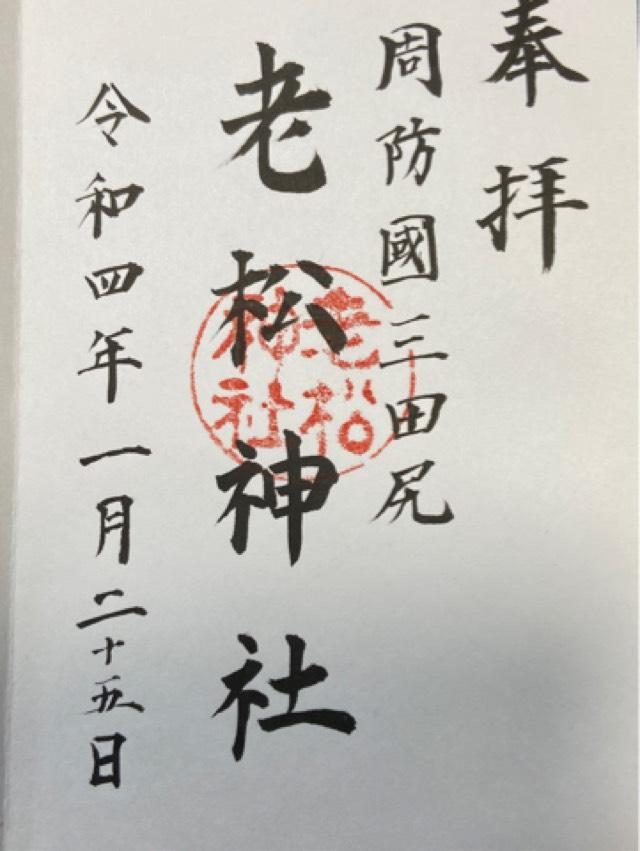 奉拝
周防國三田尻
老松神社
老松神社
令和四年一月二十五日